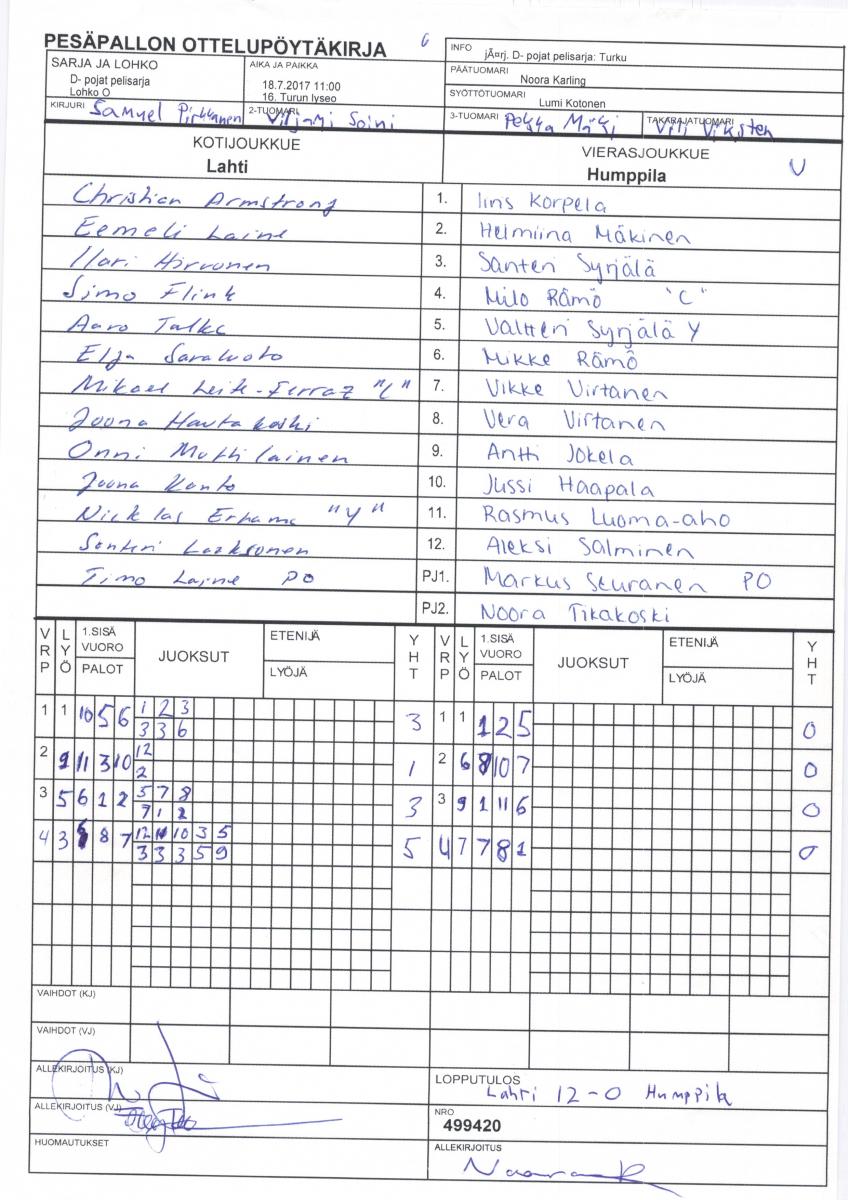 PESÄPALLON OTTELUPÖYTÄKIRJA 6
INFO jÃ¤rj. D- pojat pelisarja: Turku
SARJA JA LOHKO
D- pojat pelisarja
Lohko O
AIKA JA PAIKKA
18.7.2017 11:00
16. Turun lyseo
PÄÄTUOMARI
Noora Karling
SYÖTTÖTUOMARI
Lumi Kotonen
KIRJURI Samuel Pirkkanen
2-TUOMARI Viljami Soini
3-TUOMARI Pekka Mäki
TAKARAJATUOMARI Vili Viksten
KOTIJOUKKUE
Lahti
VIERASJOUKKUE
Humppila V
Christian Armstrong 1. Iins Korpela
Eemeli Laine 2. Helmiina Mäkinen
Ilari Hirvonen 3. Santeri Syrjälä
Simo Flink 4. Milo Rämö "C"
Aaro Talke 5. Valtteri Syrjälä Y
Elja Saraluoto 6. Mikke Rämö
Mikael 7. Vikke Virtanen
Joona Hautakoski 8. Vera Virtanen
Onni 9. Antti Jokela
Joona Konto 10. Jussi Haapala
Nicklas "Y" 11. Rasmus Luoma-aho
Santeri Laaksonen 12. Aleksi Salminen
Timo Laine PO PJ1. Markus Seuranen PO
PJ2. Noora Tikakoski
VRP LYÖ 1.SISÄ VUORO PALOT JUOKSUT ETENIJÄ LYÖJÄ YHT VRP LYÖ 1.SISÄ VUORO PALOT JUOKSUT ETENIJÄ LYÖJÄ YHT
1 1 10 5 6 1 2 3 3 1 1 1 2 5 0
3 3 6
2 9 11 3 10 12 1 2 6 8 10 7 0
2
3 5 6 1 2 5 7 8 3 3 9 1 11 6 0
7 1 2
4 3 8 7 12 11 10 3 5 5 4 7 7 8 1 0
3 3 3 5 9
VAIHDOT (KJ)
VAIHDOT (VJ)
ALLEKIRJOITUS (KJ)
LOPPUTULOS
Lahti 12-0 Humppila
ALLEKIRJOITUS (VJ)
NRO
499420
HUOMAUTUKSET
ALLEKIRJOITUS